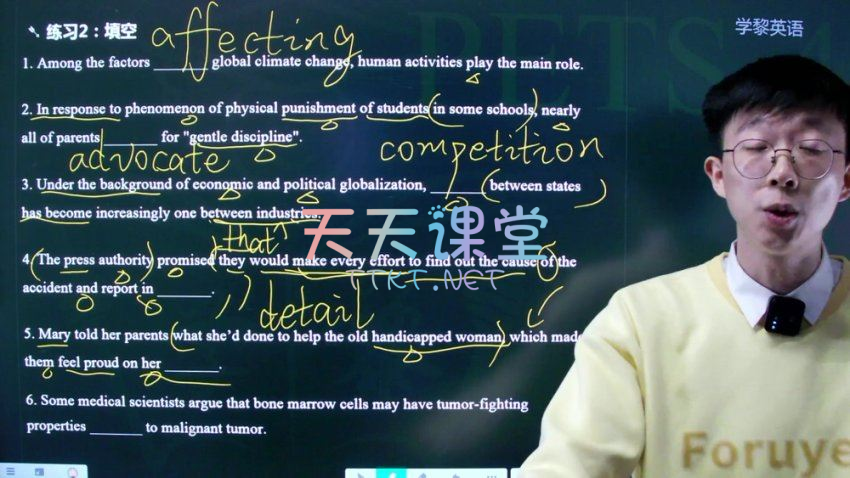 练习2：填空
affecting
学黎英语
PETS
1. Among the factors ______ global climate change, human activities play the main role.
2. In response to phenomenon of physical punishment of students in some schools, nearly
all of parents ______ for "gentle discipline".
advocate
competition
3. Under the background of economic and political globalization, ______ between states
has become increasingly one between industries.
that
天天课堂
TTKT.NET
4. The press authority promised they would make every effort to find out the cause of the
accident and report in ______.
detail
5. Mary told her parents what she'd done to help the old handicapped woman, which made
them feel proud on her ______.
6. Some medical scientists argue that bone marrow cells may have tumor-fighting
properties ______ to malignant tumor.
Foruye